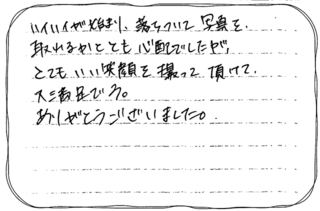 イヤイヤが始まり、落ちついて写真を、
取れるかとても心配でしたが、
とてもいい笑顔を撮って頂けて、
大満足です。
ありがとうございました。